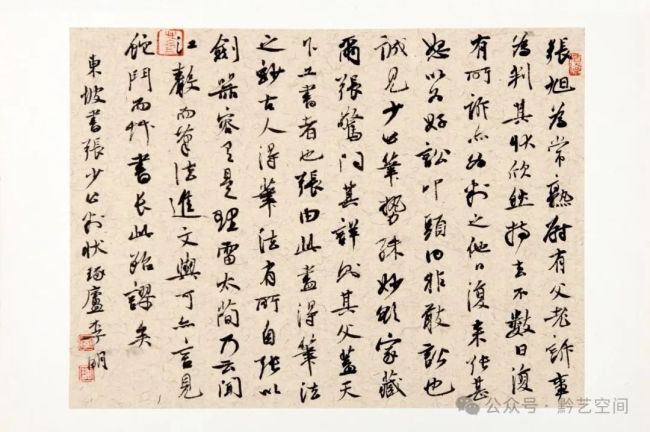 張旭為常熟尉有父老訴事
為判其狀欣然持去不數日復
有所訴亦為判之他日復來張甚
怒以為好訟叩頭曰非敢訟也
誠見少公筆勢殊妙欲家藏
爾張驚問其詳則其父蓋天
下工書者也張由此盡得筆法
之妙古人得筆法有所自張以
劍器容有是理雷太簡乃云聞
江聲而筆法進文與可亦言見
蛇鬥而艸書長此殆謬矣
東坡書張少公判狀琢廬李明
公众号·黔艺空间